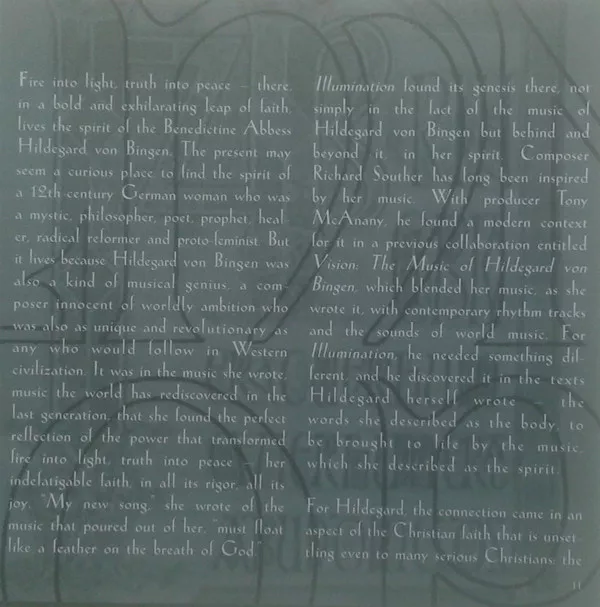 Fire into light, truth into peace – there,
in a bold and exhilarating leap of faith,
lives the spirit of the Benedictine Abbess
Hildegard von Bingen. The present may
seem a curious place to find the spirit of
a 12th-century German woman who was
a mystic, philosopher, poet, prophet, heal-
er, radical reformer and proto-feminist. But
it lives because Hildegard von Bingen was
also a kind of musical genius, a com-
poser innocent of worldly ambition who
was also as unique and revolutionary as
any who would follow in Western
civilization. It was in the music she wrote,
music the world has rediscovered in the
last generation, that she found the perfect
reflection of the power that transformed
fire into light, truth into peace – her
indefatigable faith, in all its rigor, all its
joy. "My new song," she wrote of the
music that poured out of her, "must float
like a feather on the breath of God."
Illumination found its genesis there, not
simply in the fact of the music of
Hildegard von Bingen but behind and
beyond it, in her spirit. Composer
Richard Souther has long been inspired
by her music. With producer Tony
McAnany, he found a modern context
for it in a previous collaboration entitled
Vision: The Music of Hildegard von
Bingen, which blended her music, as she
wrote it, with contemporary rhythm tracks
and the sounds of world music. For
Illumination, he needed something dif-
ferent, and he discovered it in the texts
Hildegard herself wrote – the
words she described as the body, to
be brought to life by the music,
which she described as the spirit.
For Hildegard, the connection came in an
aspect of the Christian faith that is unset-
tling even to many serious Christians: the
11